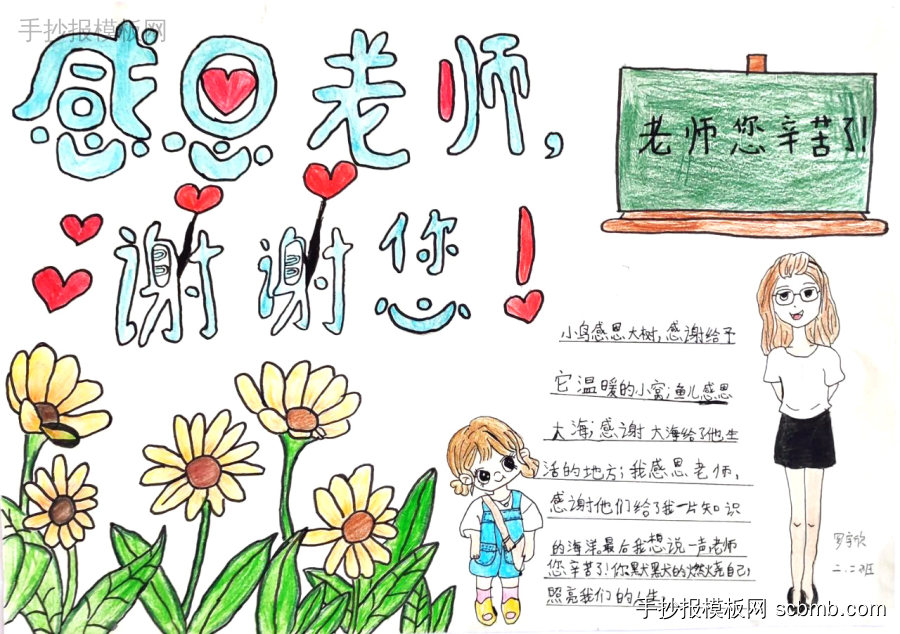 手抄报模板网
感恩老师,
谢谢您!
老师您辛苦了!
小鸟感恩大树,感谢给予
它温暖的小窝;渔儿感恩
大海,感谢大海给了他生
活的地方;我感恩老师,
感谢他们给了我一片知识
的海洋。最后我想说一声老师
您辛苦了!你默默的燃烧自己,
照亮我们的人生
罗宇欣
二.二班
手抄报模板网 scbmb.com